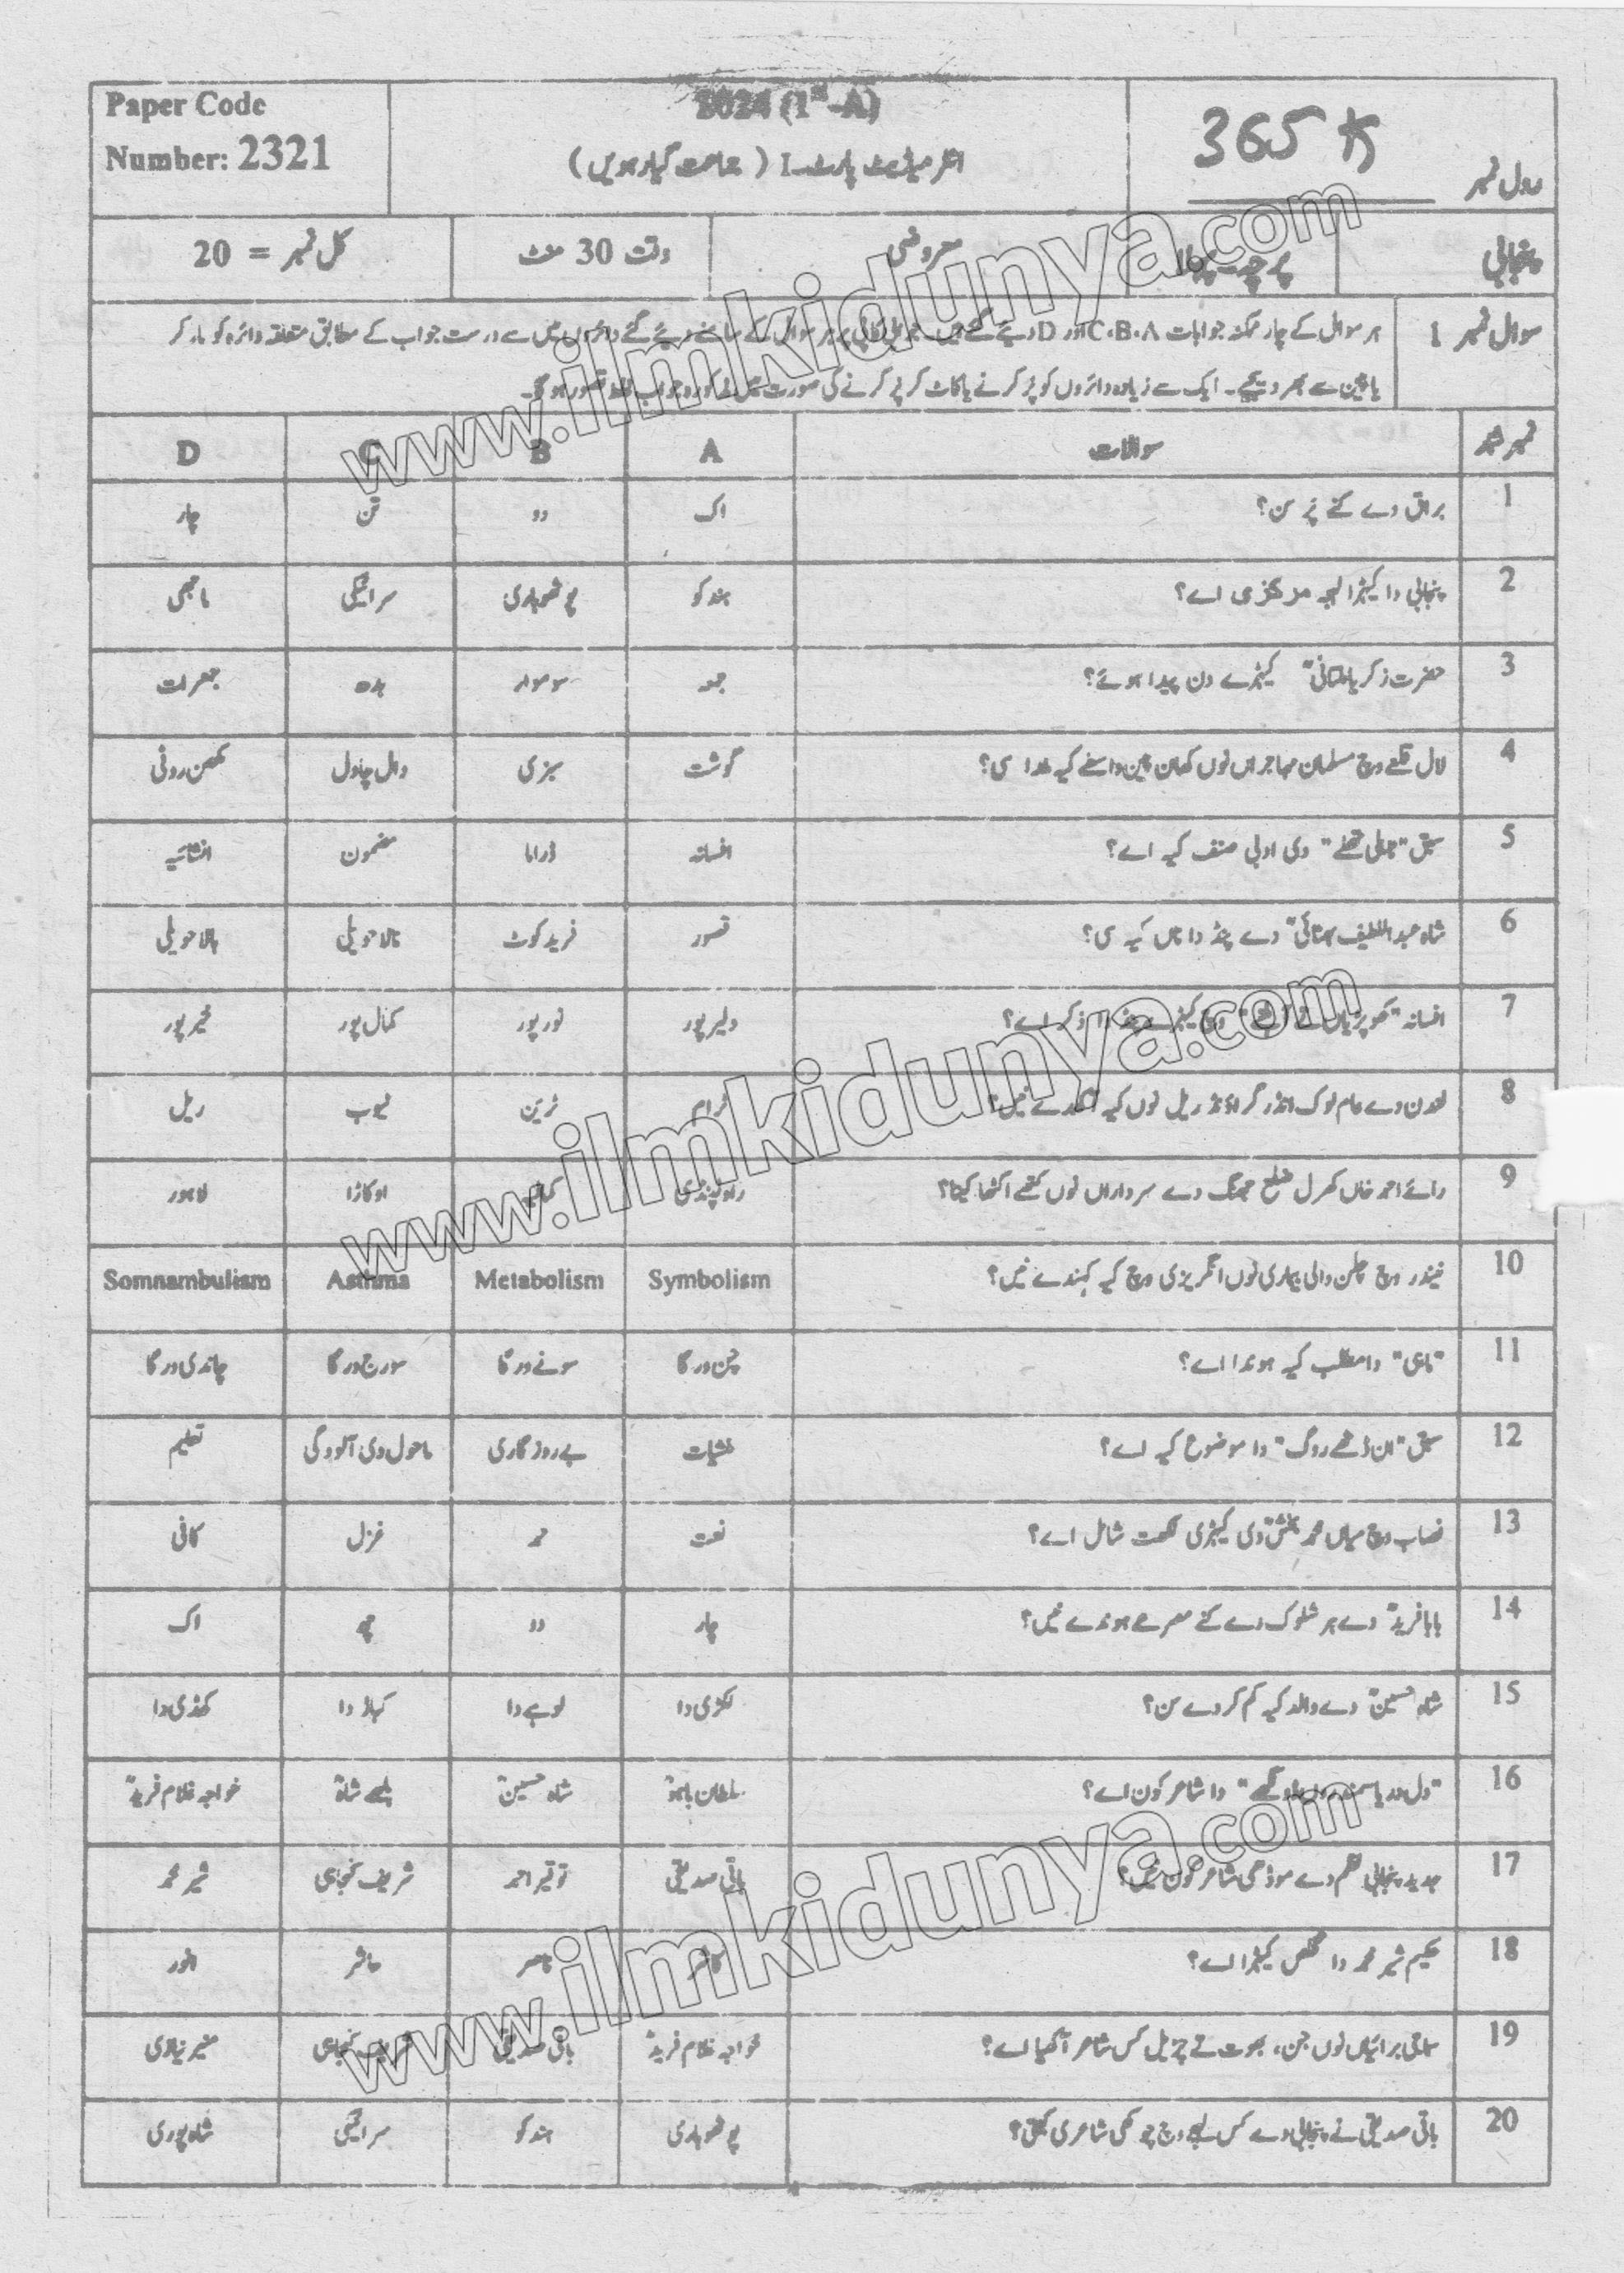 Paper Code
Number: 2321
2024 (1st-A)
انٹرمیڈیٹ پارٹ-I (جماعت گیارہویں)
365 K
رول نمبر
پنجابی
پرچہ پہلا
معروضی
وقت 30 منٹ
کل نمبر = 20
سوال نمبر 1
ہر سوال کے چار ممکنہ جوابات C،B،A اور D دیئے گئے ہیں۔ جوابی کاپی پر ہر سوال کے سامنے دیئے گئے دائروں میں سے درست جواب کے مطابق متعلقہ دائرہ کو مارکر
یا پین سے بھر دیجیے۔ ایک سے زیادہ دائروں کو پُر کرنے یا کاٹ کر پُر کرنے کی صورت میں مذکورہ جواب غلط تصور ہو گا۔
نمبر شمار سوالات A B C D
1 براق دے کنے پَر سن؟ اک دو تن چار
2 پنجابی دا کیہڑا لہجہ مرکزی اے؟ ہندکو پوٹھوہاری سرائیکی ماجھی
3 حضرت زکریا ملتانیؒ کیہڑے دن پیدا ہوئے؟ جمعہ سوموار بدھ جمعرات
4 لال قلعے وچ مسلمان مہاجراں نوں کھان پین واسطے کیہ ملدا سی؟ گوشت سبزی دال چاول مکھن روٹی
5 سبق "جعلی تحفے" دی ادبی صنف کیہ اے؟ افسانہ ڈراما مضمون انشائیہ
6 شاہ عبداللطیف بھٹائیؒ دے پنڈ دا ناں کیہ سی؟ قصور فرید کوٹ تالا حویلی ہالا حویلی
7 افسانہ "کھوپڑیاں تے وچ کیہڑے پنڈ دا ذکر اے؟ دلیر پور نور پور کمال پور خیر پور
8 لندن دے عام لوک انڈر گراؤنڈ ریل نوں کیہ آکھدے نیں؟ ٹرام ٹرین ٹیوب ریل
9 رائے احمد خاں کھرل ضلع جھنگ دے سرداراں نوں کتھے اکٹھا کیتا؟ راولپنڈی کمالیہ اوکاڑا لاہور
10 نیندر وچ چلن والی بیماری نوں انگریزی وچ کیہ کہندے نیں؟ Symbolism Metabolism Asthma Somnambulism
11 "ماہی" دا مطلب کیہ ہوندا اے؟ چن ورگا سونے ورگا سورج ورگا چاندی ورگا
12 سبق "ان ڈٹھے روگ" دا موضوع کیہ اے؟ منشیات بے روزگاری ماحول دی آلودگی تعلیم
13 نصاب وچ میاں محمد بخشؒ دی کیہڑی لکھت شامل اے؟ نعت حمد غزل کافی
14 بابا فریدؒ دے ہر شلوک دے کنے مصرعے ہوندے نیں؟ چار دو چھ اک
15 شاہ حسینؒ دے والد کیہ کم کردے سن؟ لکڑی دا لوہے دا کپڑا دا کھڈی دا
16 "دل دریا سمندروں ڈونگھے" دا شاعر کون اے؟ سلطان باہوؒ شاہ حسینؒ بلھے شاہؒ خواجہ غلام فریدؒ
17 جدید پنجابی نظم دے موڈھی شاعر کون نیں؟ باقی صدیقی توقیر احمد شریف کنجاہی شیر محمد
18 حکیم شیر محمد دا تخلص کیہڑا اے؟ ناصر انور
19 سماجی برائیاں نوں جن، بھوت تے چڑیل کس شاعر آکھیا اے؟ خواجہ غلام فریدؒ باقی صدیقی شریف کنجاہی منیر نیازی
20 باقی صدیقی نے پنجابی دے کس لہجے وچ چوکھی شاعری کیتی؟ پوٹھوہاری ہندکو سرائیکی شاہ پوری
www.ilmkidunya.com
www.ilmkidunya.com
www.ilmkidunya.com